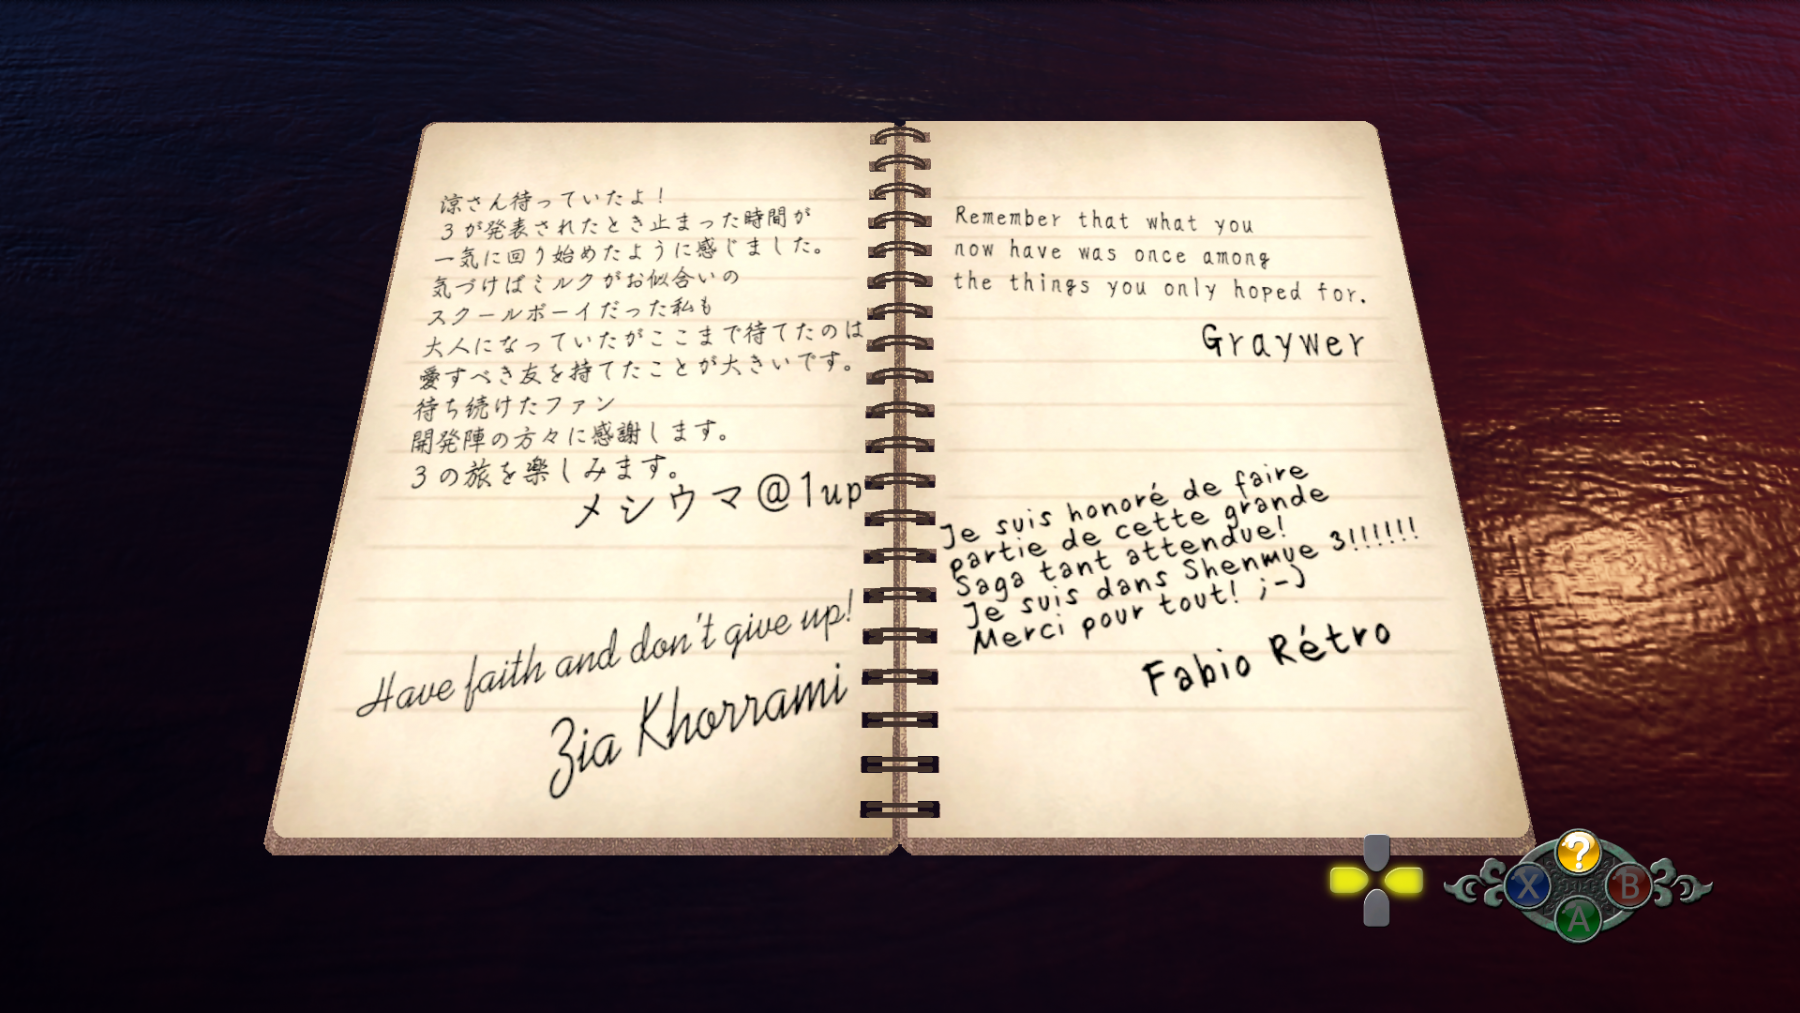 涼さん待っていたよ!
3が発表されたとき止まった時間が
一気に回り始めたように感じました。
気づけばミルクがお似合いの
スクールボーイだった私も
大人になっていたがここまで待てたのは
愛すべき友を持てたことが大きいです。
待ち続けたファン
開発陣の方々に感謝します。
3の旅を楽しみます。
メシウマ@1up
Have faith and don't give up!
Zia Khorrami
Remember that what you
now have was once among
the things you only hoped for.
Graywer
Je suis honoré de faire
partie de cette grande
Saga tant attendue!
Je suis dans Shenmue 3!!!!!!
Merci pour tout! ;-)
Fabio Rétro
?
X
B
A